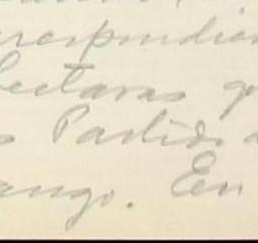 respondien
lectaras q
s Partido
ango. En